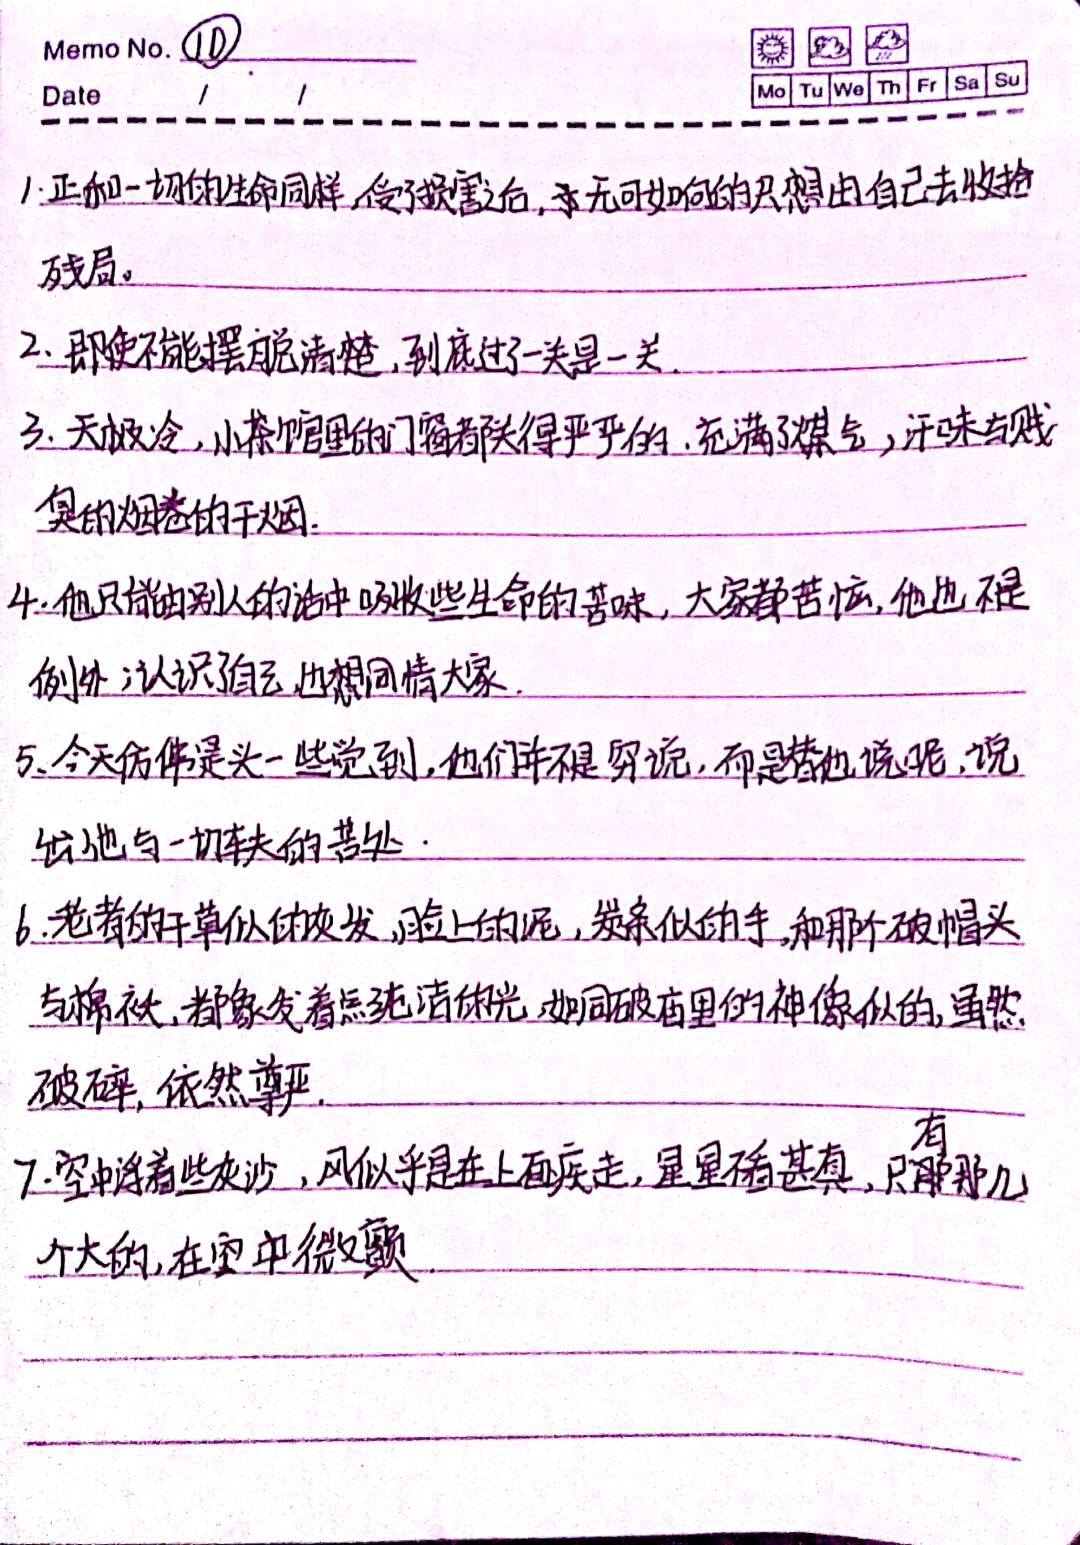 Memo No. ⑩
Date / /
Mo Tu We Th Fr Sa Su
1.正和一切的生命同样,受了损害之后,无可如何的只想由自己去收拾
残局。
2.即使不能摆脱清楚,到底过了一关是一关.
3.天极冷,小茶馆里的门窗都关得严严的.充满了煤气,汗味与贱
臭的烟卷的干烟.
4.他只能由别人的话中吸收些生命的苦味,大家都苦恼,他也不是
例外;认识了自己也想同情大家.
5.今天仿佛是头一些觉到,他们并不是穷说,而是替他说呢,说
出他与一切车夫的苦处.
6.老者的干草似的灰发,脸上的泥,炭条似的手,和那个破帽头
与棉袄,都象发着点纯洁的光,如同破庙里的神像似的,虽然
破碎,依然尊严.
7.空中浮着些灰沙,风似乎是在上面疾走,星星不看甚真,只有那几
个大的,在空中微颤.